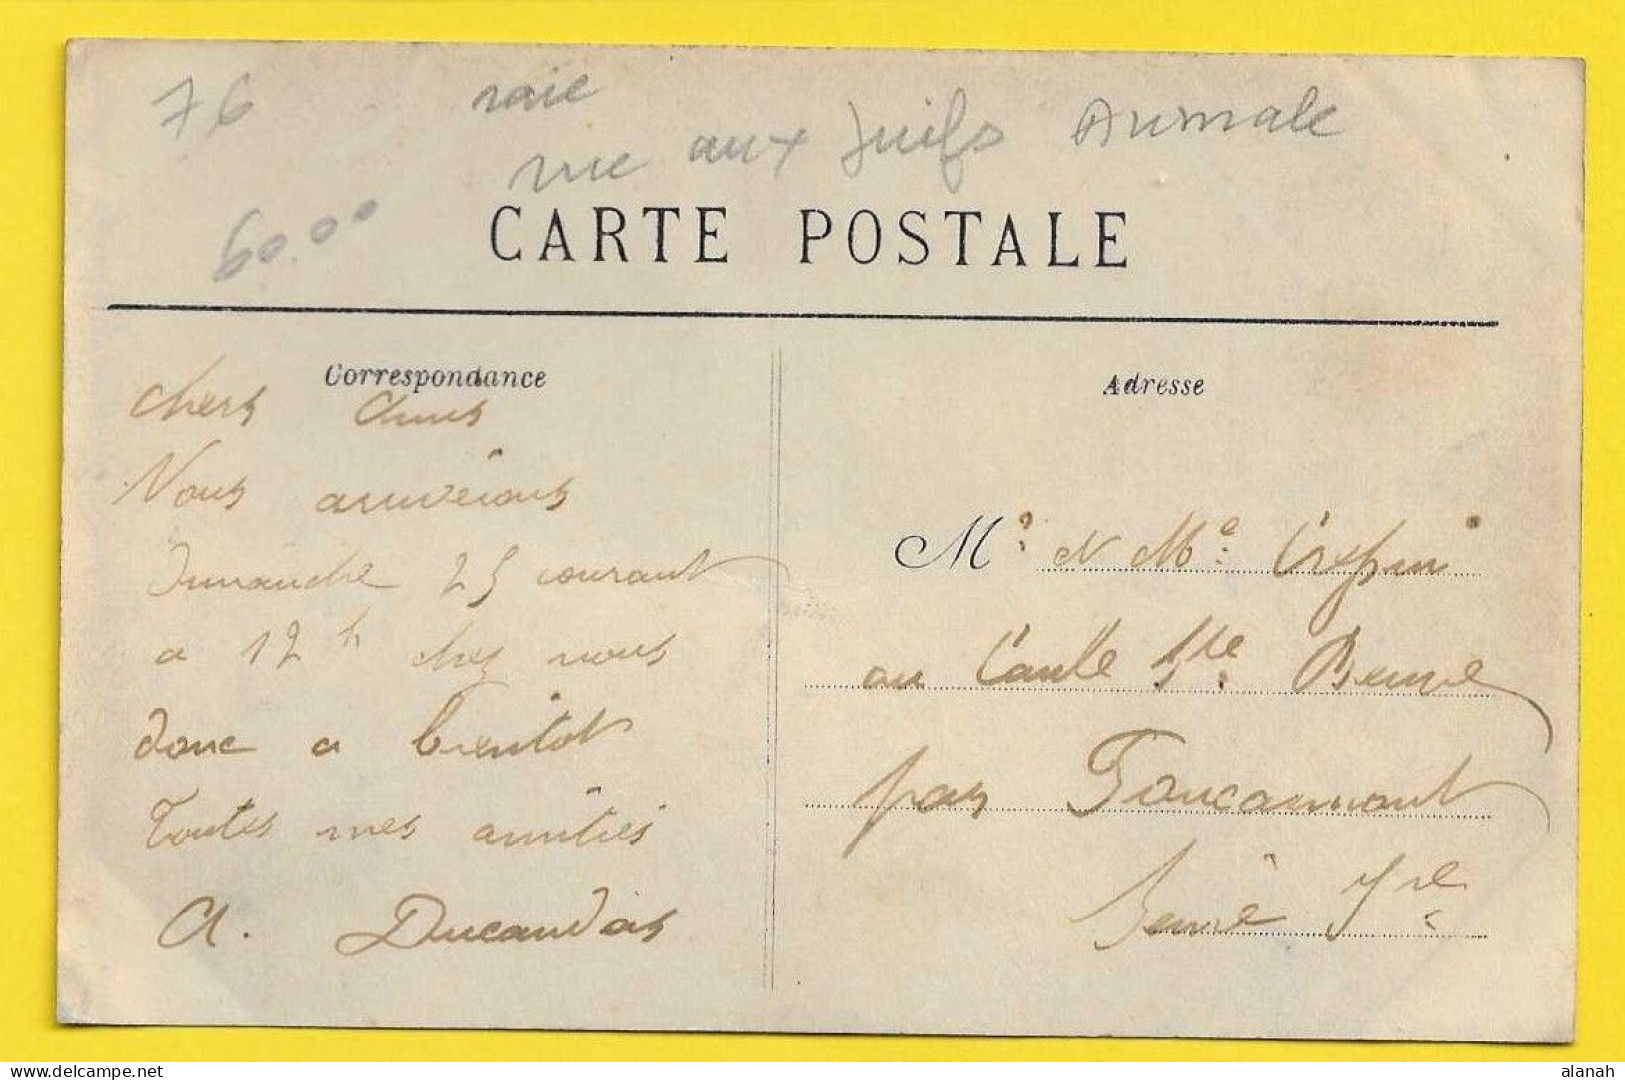 76
raie
rue aux Juifs Aumale
60.00
CARTE POSTALE
Correspondance
Chers Amis
Nous arriverons
Dimanche 25 courant
a 12 h chez nous
donc a bientôt
Toutes mes amitiés
A. Ducaudas
Adresse
Mr & Me Crespin
au Caule Ste Beuve
par Foucarmont
Seine Fre
delcampe.net
alanah